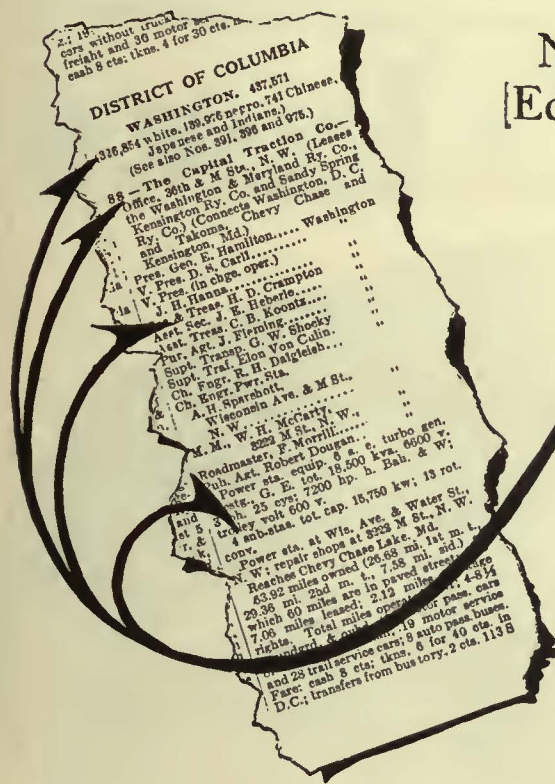 2.; 19
cors without truck
freight and 30 motor ser
cash 8 cts; tkns. 4 for 30 cts.
DISTRICT OF COLUMBIA
WASHINGTON. 437,571
(326,854 white, 109,976 negro, 741 Chinese,
Japanese and Indians.)
(See also Nos. 391, 396 and 975.)
88—The Capital Traction Co.—
Office, 36th & M Sts., N. W. (Leases
the Washington & Maryland Ry. Co.,
Kensington Ry. Co. and Sandy Spring
Ry. Co.) (Connects Washington, D. C.
and Takoma, Chevy Chase and
Kensington, Md.)
Pres. Geo. E. Hamilton..... Washington
V. Pres. D. S. Carll.......... "
V. Pres. (in chge. oper.)
J. H. Hanna............ "
& Treas. H. D. Crampton "
Asst. Sec. J. E. Heberle..... "
Asst. Treas. C. B. Koontz.... "
Pur. Agt. J. Fleming....... "
Supt. Transp. G. W. Shocky "
Supt. Traf. Elon Von Culin. "
Ch. Engr. R. H. Dalgleish... "
Ch. Engr. Pwr. Sta.
A. H. Sparshott.
Wisconsin Ave. & M St.,
N. W. ............. "
M. M. W. H. McCarty,
3222 M St., N. W., "
Roadmaster, F. Morrill..... "
Pub. Agt. Robert Dougan.. "
Power sta. equip. 5 a. c. turbo gen.
G. E. tot. 18,500 kva; 6600 v;
3 ph. 25 cys; 7200 hp. h. Bab. & W;
trolley volt 600 v.
4 sub-stas. tot. cap. 15,750 kw; 13 rot.
conv.
Power sta. at Wis. Ave. & Water St.,
N. W; repair shops at 3222 M St., N. W.
Reaches Chevy Chase Lake, Md.
53.92 miles owned (26.68 mi. 1st m. t.,
29.36 mi. 2nd m. t., 7.58 mi. sid.)
which 60 miles are in paved street
7.06 miles leased; 2.12 miles 4-8½
rights. Total miles operated
motor pass. cars
19 motor service
and 28 trail service cars; 8 auto pass. buses.
Fare: cash 8 cts; tkns. 6 for 40 cts. in
D.C.; transfers from bus to ry. 2 cts. 113 S
N
[Ed